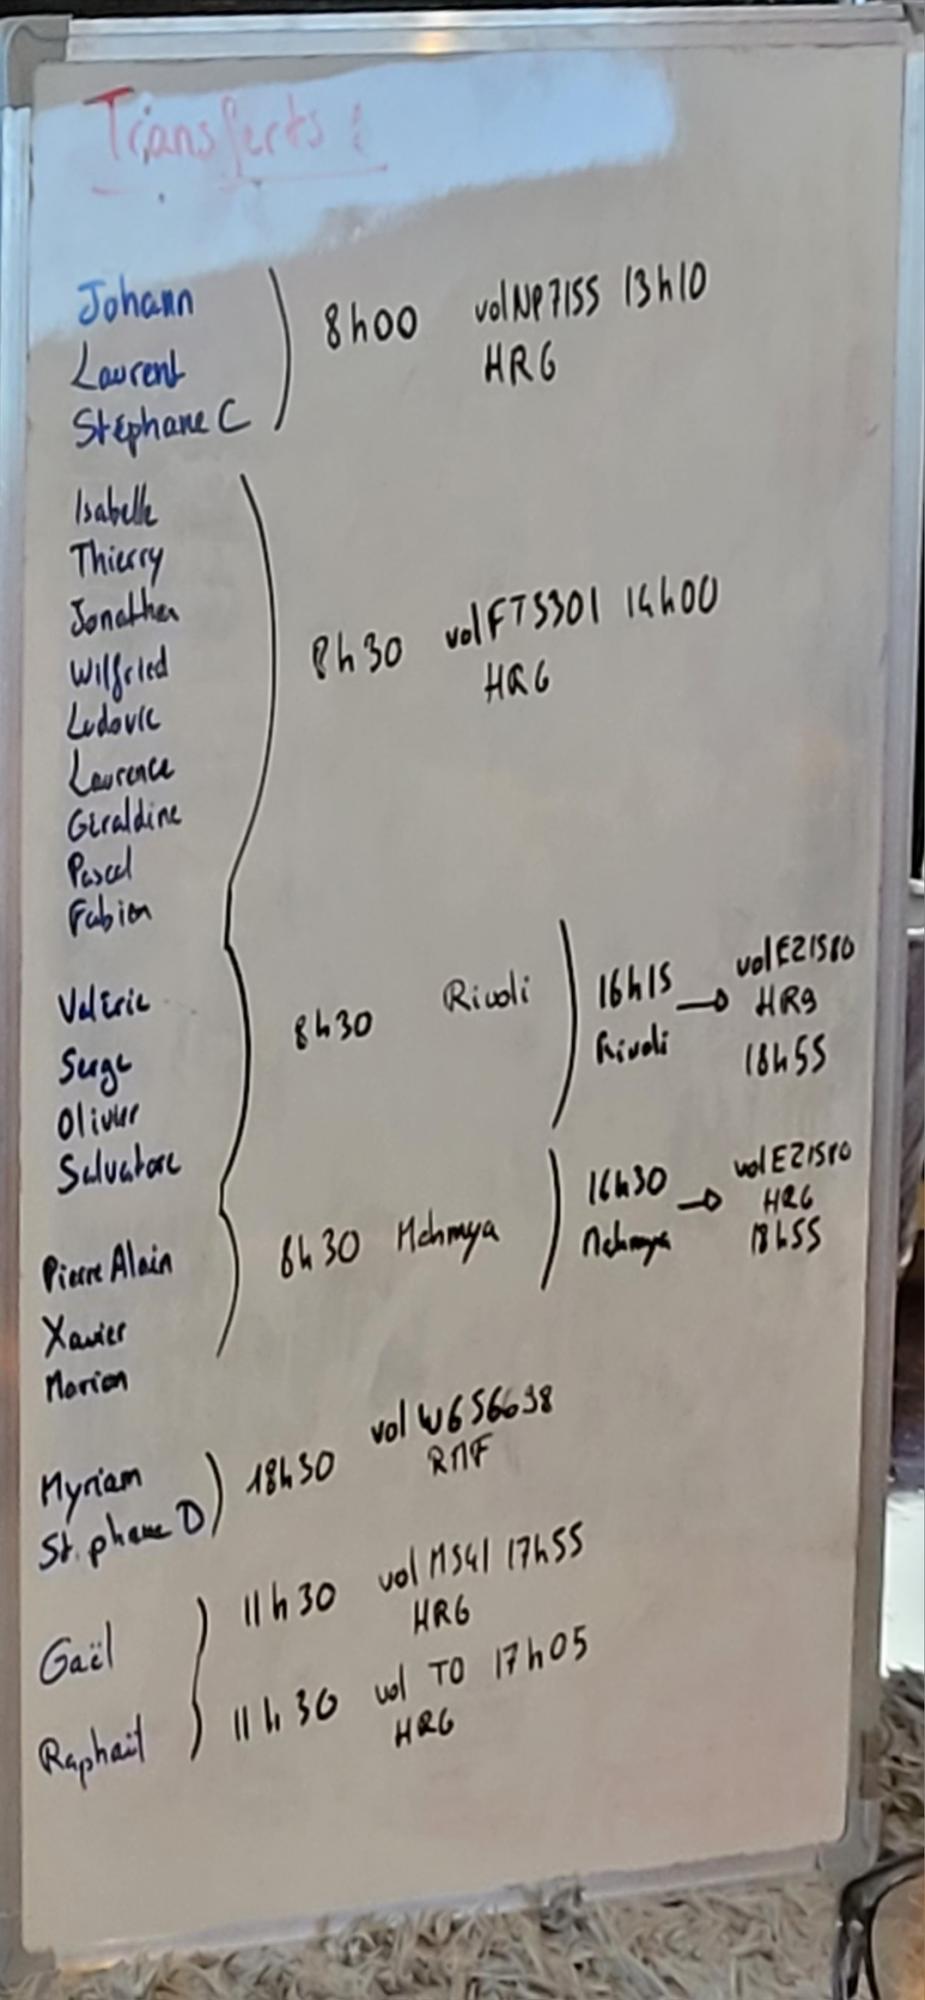 Transferts :
Johann
Laurent
Stéphane C
8h00 vol NP7155 13h10
HRG
Isabelle
Thierry
Jonathan
Wilfried
Ludovic
Laurence
Géraldine
Pascal
Fabien
8h30 vol FTS301 14h00
HRG
Valérie
Serge
Olivier
Salvatore
8h30 Rivoli
16h15
Rivoli
vol EZ1580
HRG
18h55
Pierre Alain
Xavier
Marion
8h30 Mahmya
16h30
Mahmya
vol EZ1580
HRG
18h55
Myriam
Stéphane D
18h30 vol
RMF
Gaël
11h30 vol MS41 17h55
HRG
Raphaël
11h30 vol TO 17h05
HRG